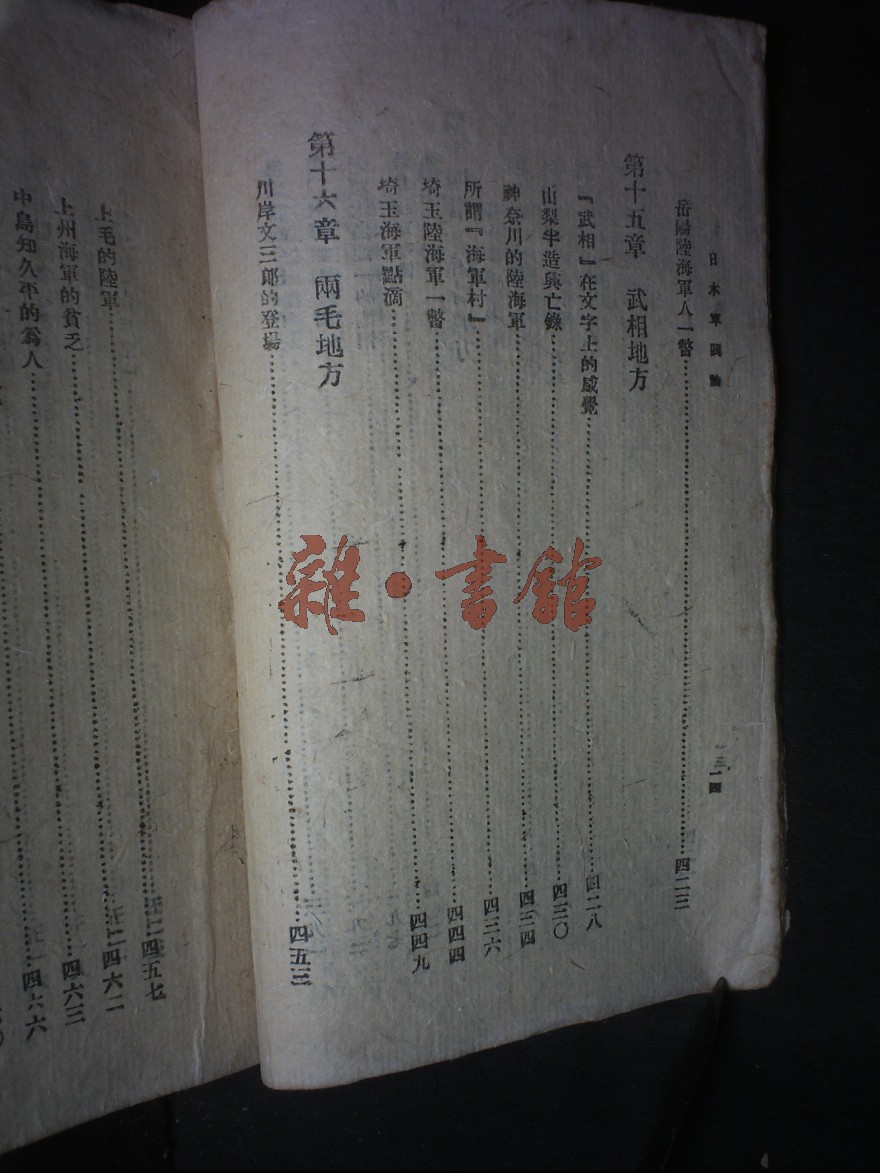 日本軍閥論
一四
岳陽陸海軍人一瞥……四二三
第十五章 武相地方
『武相』在文字上的感覺……四二八
山梨半造興亡錄……四三〇
神奈川的陸海軍……四三四
所謂『海軍村』……四三六
埼玉陸海軍一瞥……四四四
埼玉海軍點滴……四四九
第十六章 兩毛地方
川岸文三郎的登場……四五三
四五七
上毛的陸軍……四六二
上州海軍的貧乏……四六三
中島知久平的爲人……四六六
雜·書館